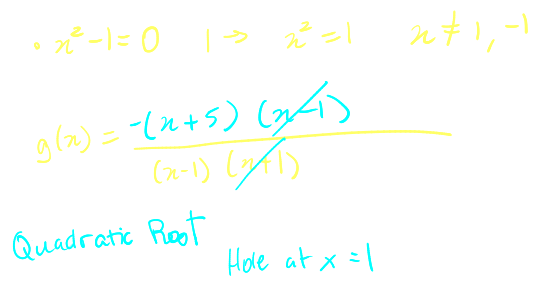 • x² - 1 = 0 1 → x² = 1 x ≠ 1, -1
g(x) = -(x+5) (x-1)
(x-1) (x+1)
Quadratic Root
Hole at x = 1